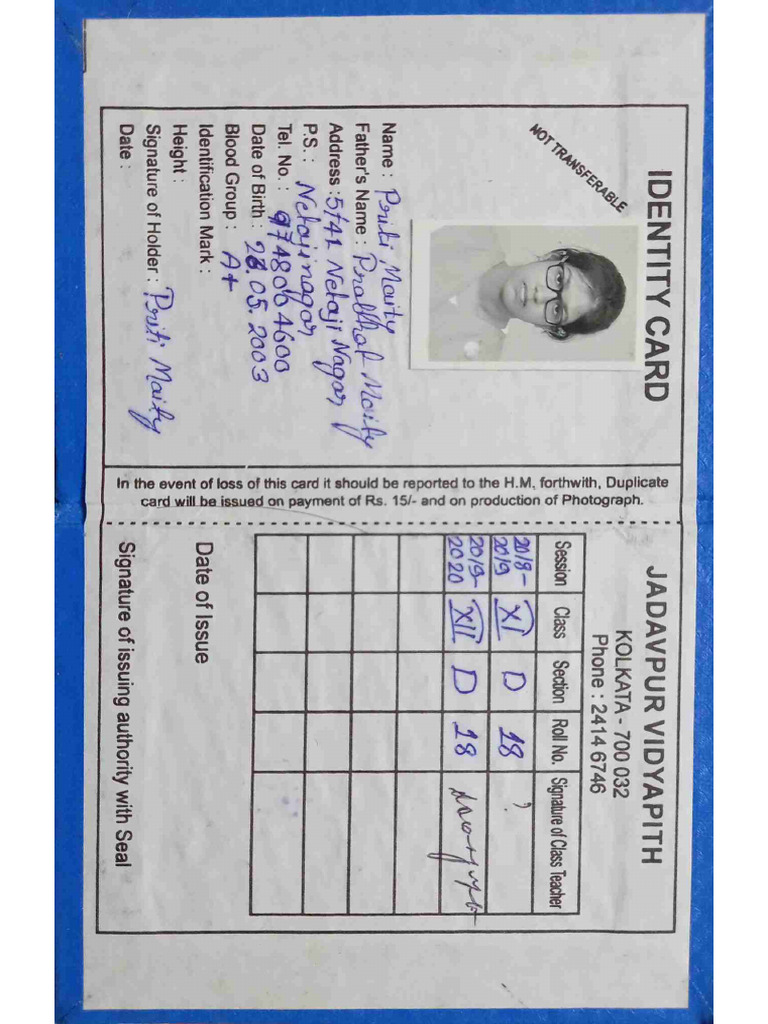 IDENTITY CARD
NOT TRANSFERABLE
Name : Priti Maity
Father's Name : Prabhat Maity
Address : 5/41 Netaji Nagar
P.S. : Netajinagar
Tel. No. : 9748064600
Date of Birth : 28.05.2003
Blood Group : A+
Identification Mark :
Height :
Signature of Holder : Priti Maity
Date :
In the event of loss of this card it should be reported to the H.M, forthwith, Duplicate
card will be issued on payment of Rs. 15/- and on production of Photograph.
JADAVPUR VIDYAPITH
KOLKATA - 700 032
Phone : 2414 6746
Session Class Section Roll No. Signature of Class Teacher
2018-2019 XI D 18
2019-2020 XII D 18
Date of Issue
Signature of issuing authority with Seal